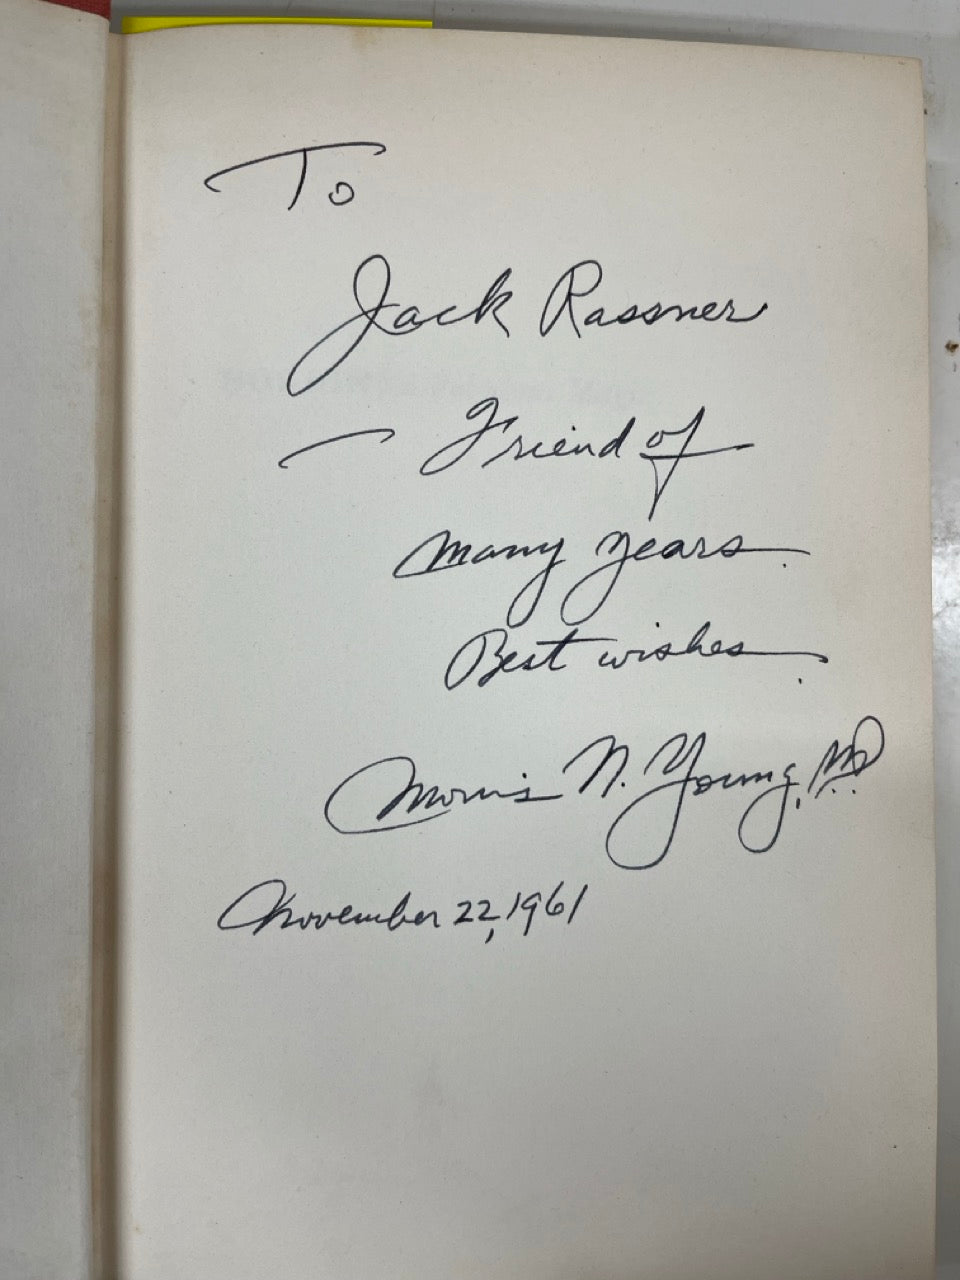 To
Jack Rassner
— Friend of
many years.
Best wishes.
Morris N. Young, M.D.
November 22, 1961